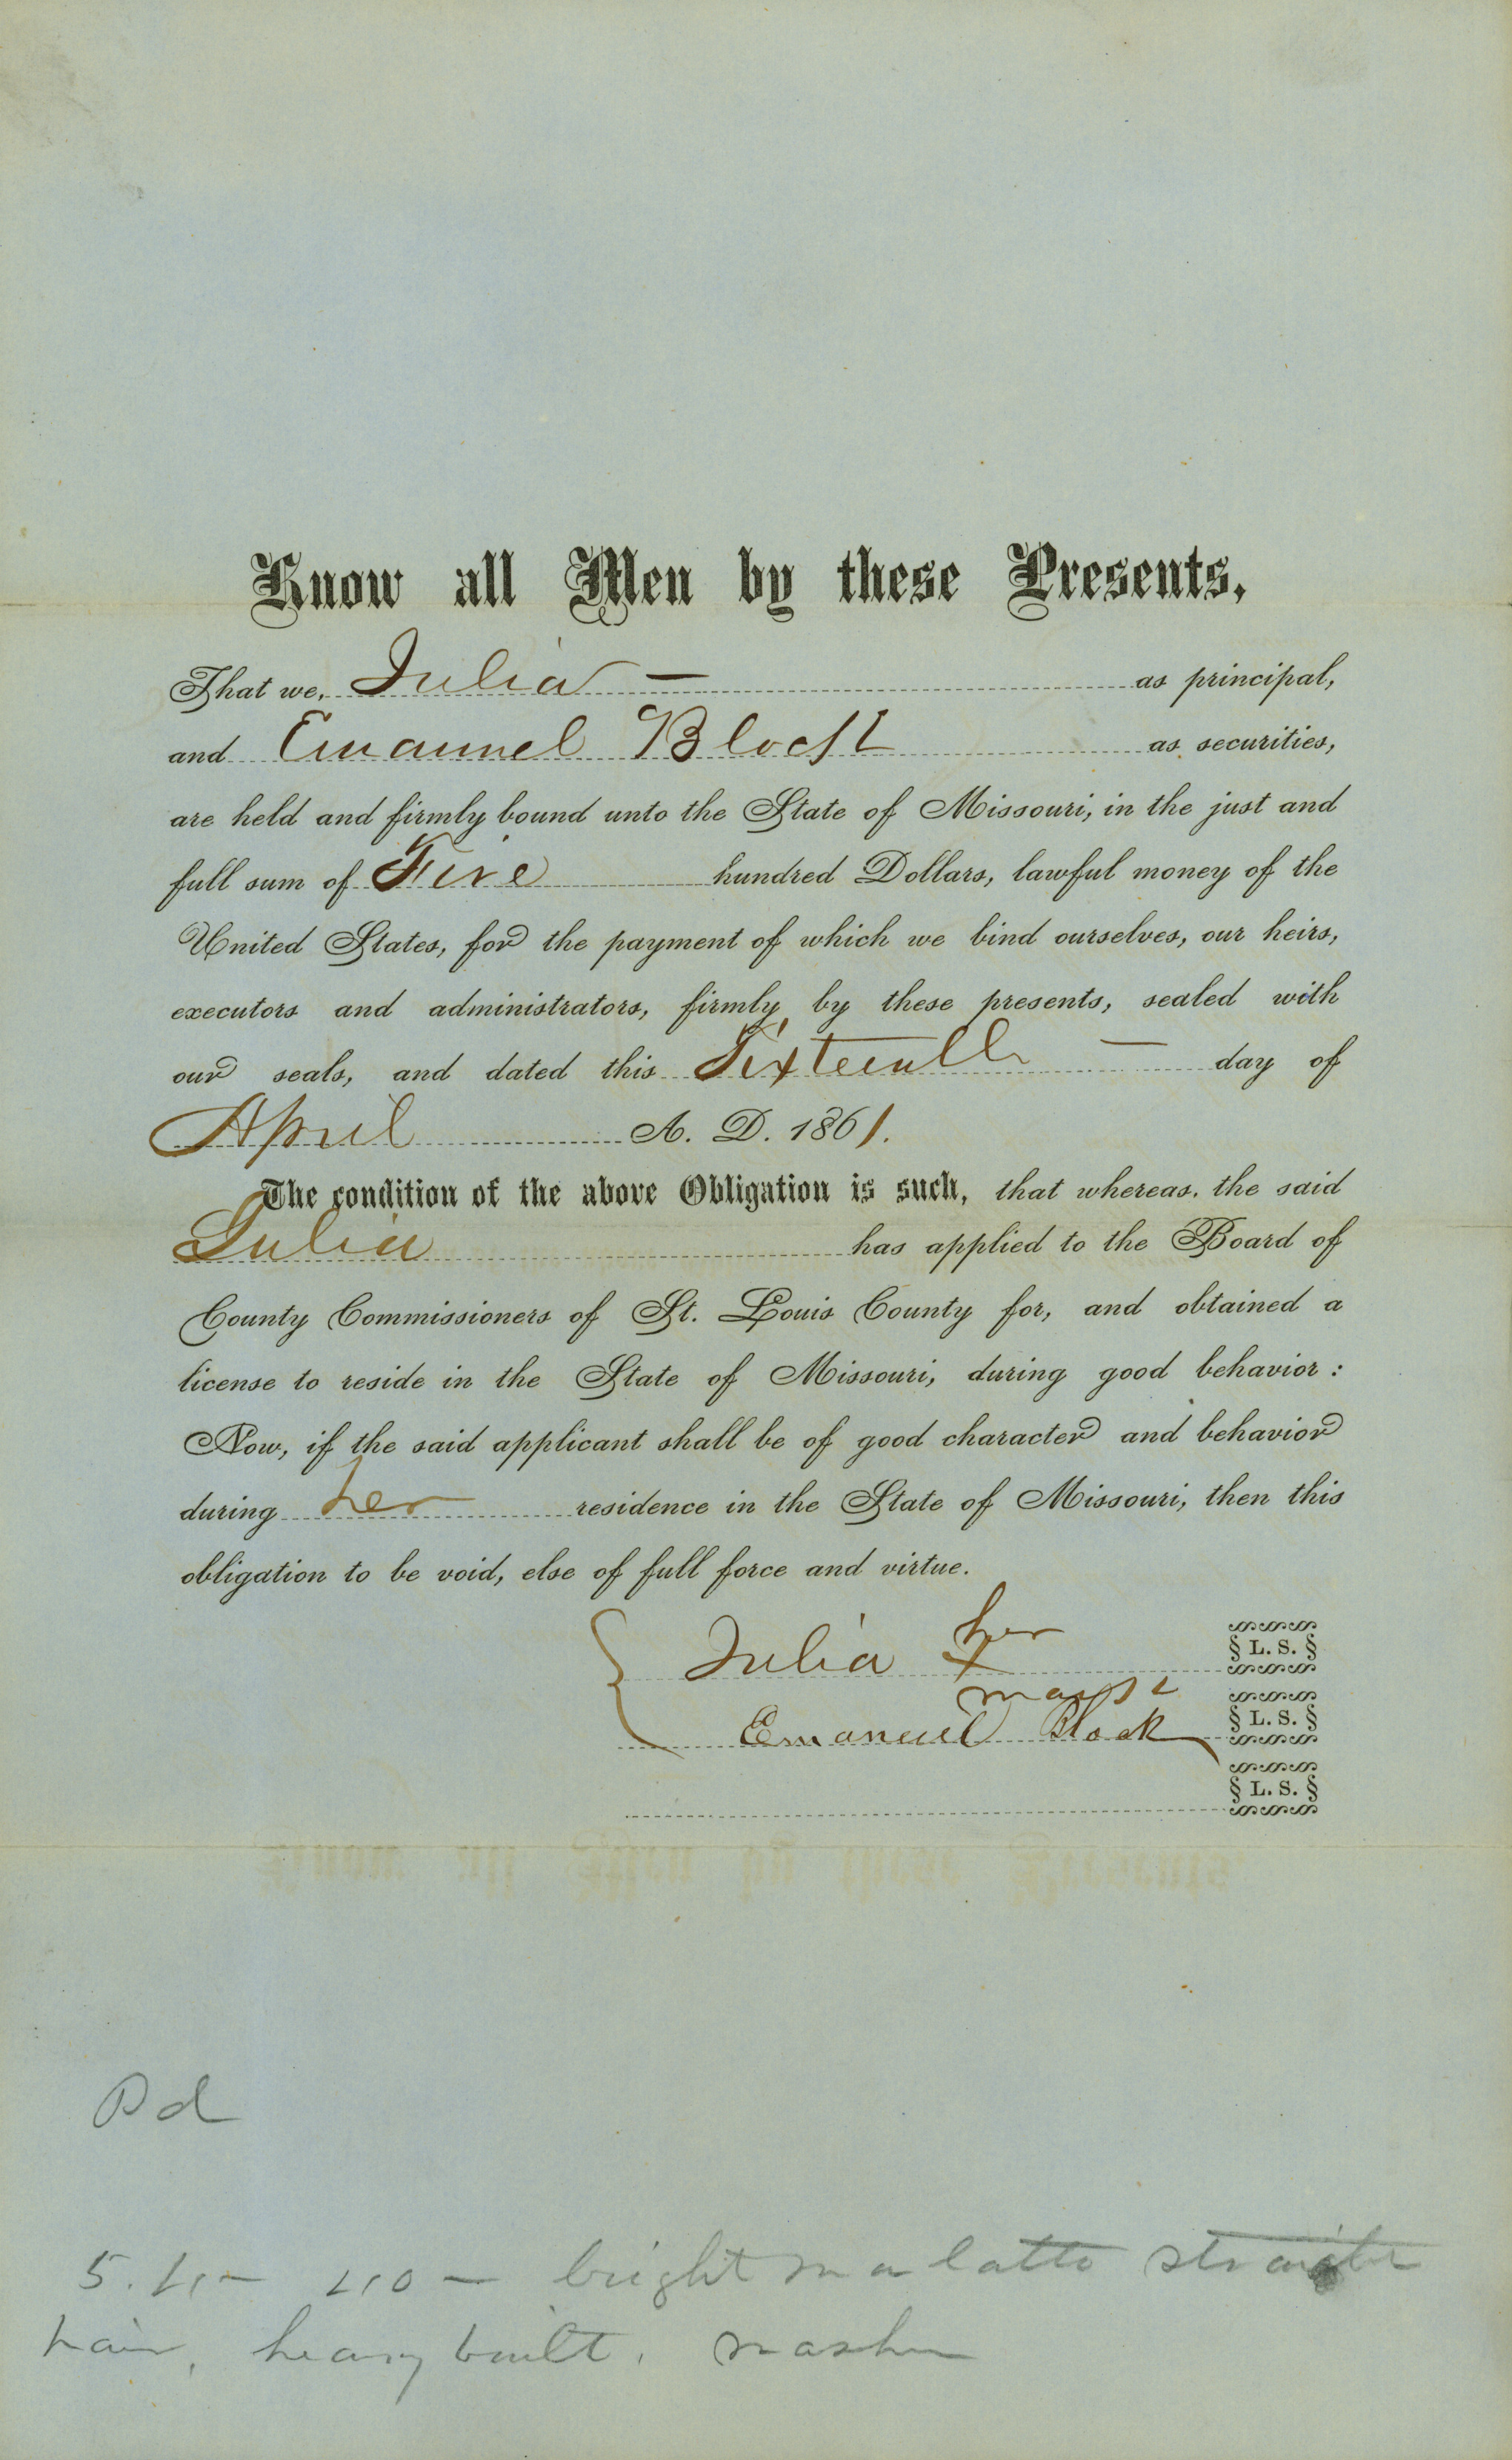 Know all Men by these Presents,
That we, Julia — as principal,
and Emanuel Block as securities,
are held and firmly bound unto the State of Missouri, in the just and
full sum of Five hundred Dollars, lawful money of the
United States, for the payment of which we bind ourselves, our heirs,
executors and administrators, firmly by these presents, sealed with
our seals, and dated this Sixteenth — day of
April A. D. 1861.
The condition of the above Obligation is such, that whereas, the said
Julia has applied to the Board of
County Commissioners of St. Louis County for, and obtained a
license to reside in the State of Missouri, during good behavior :
Now, if the said applicant shall be of good character and behavior
during her residence in the State of Missouri, then this
obligation to be void, else of full force and virtue.
her
Julia X § L. S. §
mark
Emanuel Block § L. S. §
§ L. S. §
Pd
40 — bright mulatto straight
hair, heavy built. washer